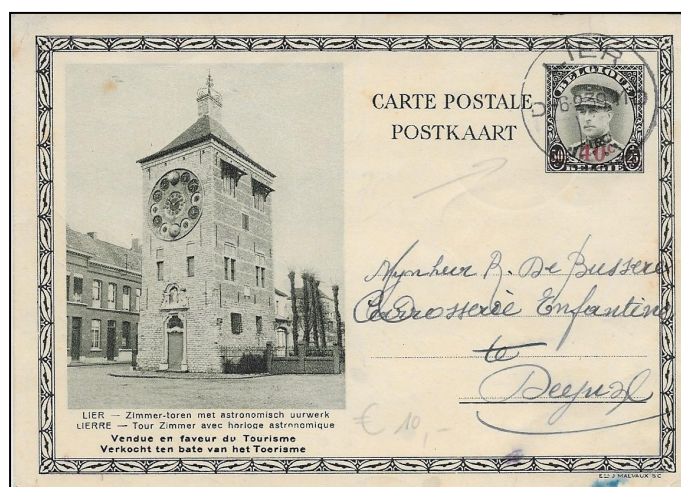 CARTE POSTALE
POSTKAART
LIER
BELGIQUE
50 40c 25
BELGIË
Mynheer R. De Bussere
Carrosserie Enfantine
to
LIER — Zimmer-toren met astronomisch uurwerk
LIERRE — Tour Zimmer avec horloge astronomique
Vendue en faveur du Tourisme
Verkocht ten bate van het Toerisme
€ 10,-
ETS J. MALVAUX S.C.